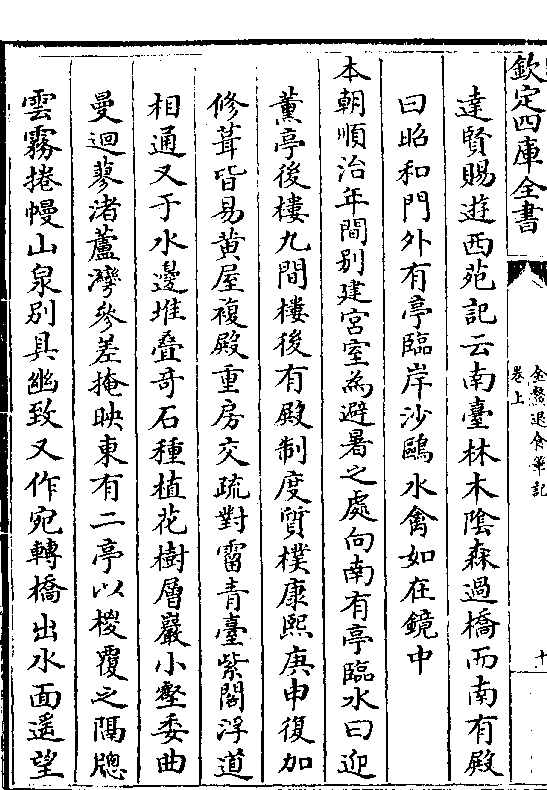 欽定四庫全書
金鰲退食筆記
卷上
十
達賢賜遊西苑記云南臺林木陰森過橋而南有殿
曰昭和門外有亭臨岸沙鷗水禽如在鏡中
本朝順治年間别建宫室為避暑之處向南有亭臨水曰迎
薰亭後樓九間樓後有殿制度質樸康熙庚申復加
修葺皆易黄屋複殿重房交疏對霤青臺紫閣浮道
相通又于水邊堆疊奇石種植花樹層巖小壑委曲
曼迴蓼渚蘆灣參差掩映東有二亭以椶覆之隔牕
雲霧捲幔山泉别具幽致又作宛轉橋出水面遥望